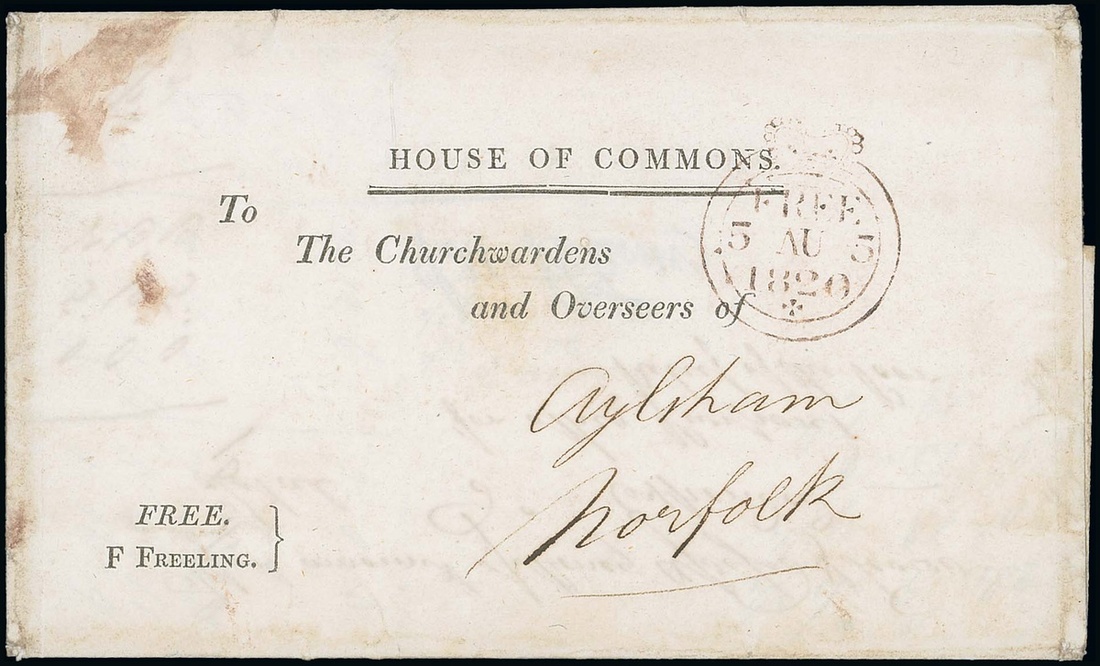 HOUSE OF COMMONS.
To
The Churchwardens
and Overseers of
FREE
5 AU 5
1820
Aylsham
Norfolk
FREE.
F FREELING.